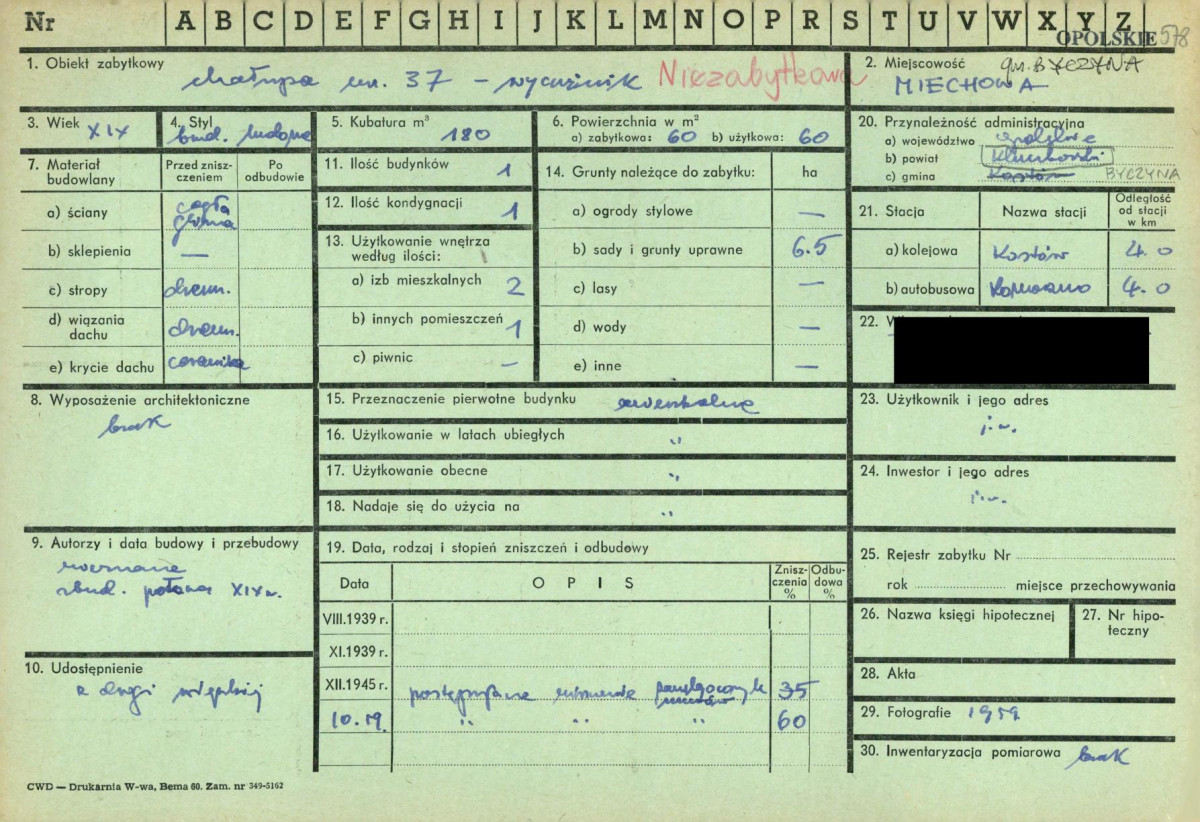 Nr A B C D E F G H I J K L M N O P R S T U V W X Y Z
OPOLSKIE 578
1. Obiekt zabytkowy chałupa nr. 37 – wycużnik Niezabytkowa
2. Miejscowość gm. BYCZYNA
MIECHOWA
3. Wiek XIX
4. Styl
bud. ludowe
5. Kubatura m³ 180
6. Powierzchnia w m²
a) zabytkowa: 60 b) użytkowa: 60
20. Przynależność administracyjna
a) województwo opolskie
b) powiat Kluczborski
c) gmina Kostów BYCZYNA
7. Materiał budowlany
Przed znisz-
czeniem
Po
odbudowie
a) ściany cegła
glina
b) sklepienia —
c) stropy drewn.
d) wiązania
dachu drewn.
e) krycie dachu ceramika
11. Ilość budynków 1
12. Ilość kondygnacji 1
13. Użytkowanie wnętrza
według ilości:
a) izb mieszkalnych 2
b) innych pomieszczeń 1
c) piwnic –
14. Grunty należące do zabytku: ha
a) ogrody stylowe —
b) sady i grunty uprawne 6.5
c) lasy —
d) wody —
e) inne —
21. Stacja Nazwa stacji Odległość
od stacji
w km
a) kolejowa Kostów 4.0
b) autobusowa 4.0
22.
8. Wyposażenie architektoniczne
brak
15. Przeznaczenie pierwotne budynku mieszkalne
16. Użytkowanie w latach ubiegłych "
17. Użytkowanie obecne "
18. Nadaje się do użycia na "
23. Użytkownik i jego adres
j.w.
24. Inwestor i jego adres
j.w.
9. Autorzy i data budowy i przebudowy
nieznane
zbud. połowa XIX w.
19. Data, rodzaj i stopień zniszczeń i odbudowy
Data O P I S Znisz-
czenia
% Odbu-
dowa
%
VIII.1939 r.
XI.1939 r.
XII.1945 r. 35
10.59. " " " 60
25. Rejestr zabytku Nr
rok miejsce przechowywania
26. Nazwa księgi hipotecznej
27. Nr hipo-
teczny
28. Akta
29. Fotografie 1959
30. Inwentaryzacja pomiarowa brak
10. Udostępnienie
z drogi wiejskiej
CWD — Drukarnia W-wa, Bema 60. Zam. nr 349-5162